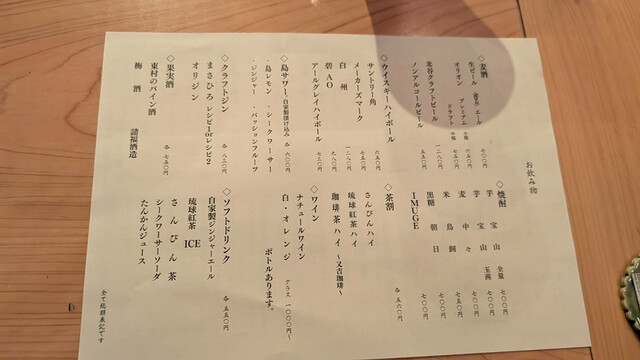 お飲み物
◇麦酒
生ビール
オリオン プレミアム 小瓶 六五〇円
ドラフト 中瓶
北谷クラフトビール 一二八〇円
ノンアルコールビール 五五〇円
◇ウイスキーハイボール
サントリー角 六五〇円
メーカーズマーク
白州 一二八〇円
碧AO 九八〇円
アールグレイハイボール 七三〇円
◇島サワー 自家製漬け込み 各 六〇〇円
・島レモン ・シークワーサー
・ジンジャー ・パッションフルーツ
◇クラフトジン 各 八二〇円
まさひろ レシピ1orレシピ2
オリジン
◇果実酒 各 七五〇円
東村のパイン酒
梅酒 請福酒造
◇焼酎
芋 宝山 全量 七〇〇円
芋 宝山 七〇〇円
麦 中々 七五〇円
米 鳥飼 七〇〇円
黒糖 朝日 七〇〇円
IMUGE 七〇〇円
◇茶割 各 五六〇円
さんぴんハイ
琉球紅茶ハイ
珈琲茶ハイ ～又吉珈琲～
◇ワイン
ナチュールワイン グラス 一〇〇〇円～
白・オレンジ ボトルあります。
◇ソフトドリンク 各 五五〇円
自家製ジンジャーエール
琉球紅茶 ICE
さんぴん茶
シークワーサーソーダ
たんかんジュース
全て総額表記です